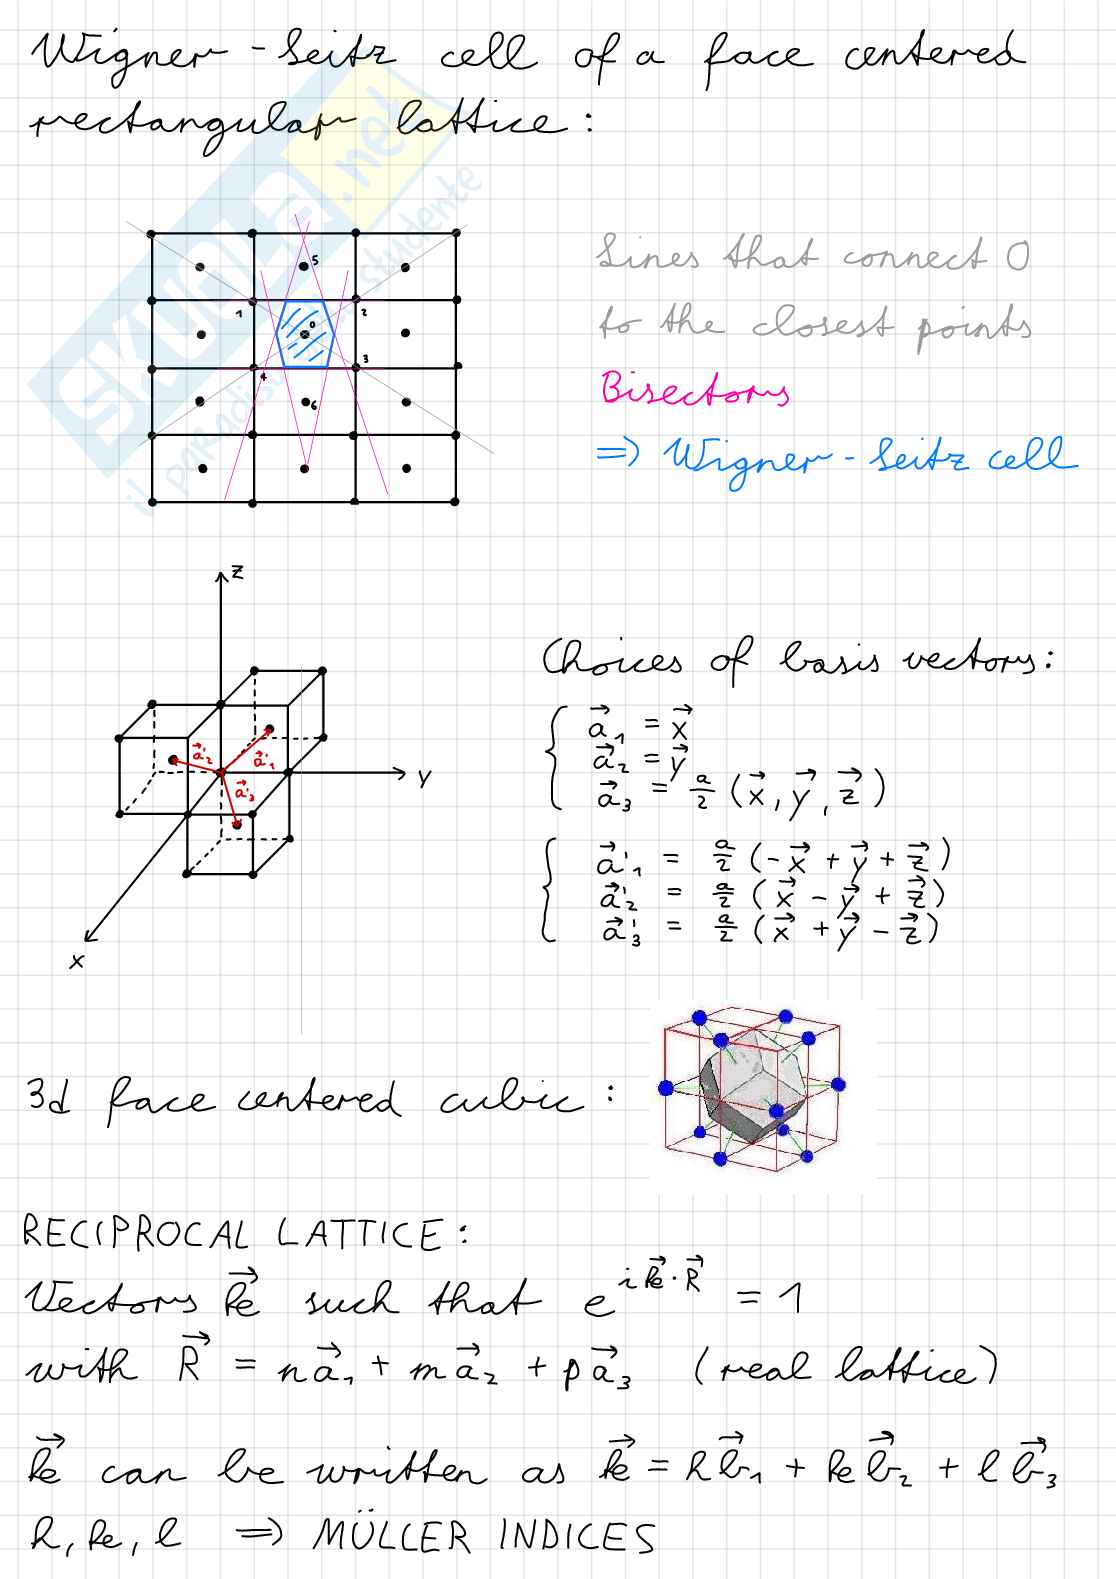 Wigner-Seitz cell of a face centered
rectangular lattice:
SKUOLA.net
il paradiso dello studente
5
1
2
0
3
4
6
Lines that connect 0
to the closest points
Bisectors
⇒ Wigner-Seitz cell
z
y
x
a⃗'₂
a⃗'₁
a⃗'₃
Choices of basis vectors:
a⃗₁ = x⃗
a⃗₂ = y⃗
a⃗₃ = a/2 (x⃗, y⃗, z⃗)
a⃗'₁ = a/2 (-x⃗ + y⃗ + z⃗)
a⃗'₂ = a/2 (x⃗ - y⃗ + z⃗)
a⃗'₃ = a/2 (x⃗ + y⃗ - z⃗)
3d face centered cubic:
RECIPROCAL LATTICE:
Vectors k⃗ such that e^{i k⃗·R⃗} = 1
with R⃗ = na⃗₁ + ma⃗₂ + pa⃗₃ (real lattice)
k⃗ can be written as k⃗ = hb⃗₁ + kb⃗₂ + lb⃗₃
h, k, l ⇒ MÜLLER INDICES